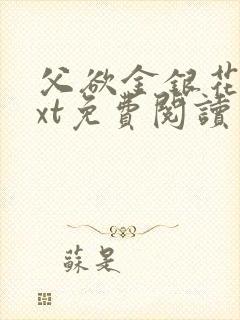 父欲金銀花
xt免費閱讀
蘇是